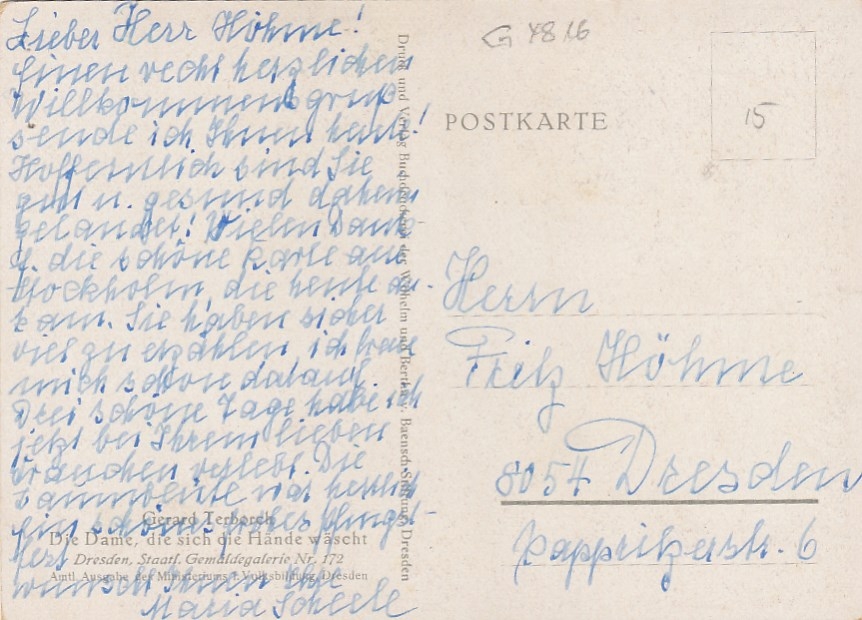 Lieber Herr Höhme!
Einen recht herzlichen
Willkommensgruß
sende ich Ihnen heut!
Hoffentlich sind Sie
gut u. gesund daheim
gelandet! Vielen Dank
f. die schöne Karte aus
Stockholm, die heute an-
kam. Sie haben sicher
viel zu erzählen, ich freue
mich schon darauf.
Drei schöne Tage habe ich
jetzt bei Ihrem lieben
verlebt. Die
war herrlich
Ein schönes frohes Pfingst-
fest
wünscht Ihnen Ihre
Maria Scheele
Gerard Terborch
Die Dame, die sich die Hände wäscht
Dresden, Staatl. Gemäldegalerie Nr. 172
Amtl. Ausgabe des Ministeriums f. Volksbildung, Dresden
Druck und Verlag Buchdruckerei der Wilhelm und Bertha v. Baensch Stiftung, Dresden
G 4816
POSTKARTE
15
Herrn
Fritz Höhme
8054 Dresden
Pappritzerstr. 6